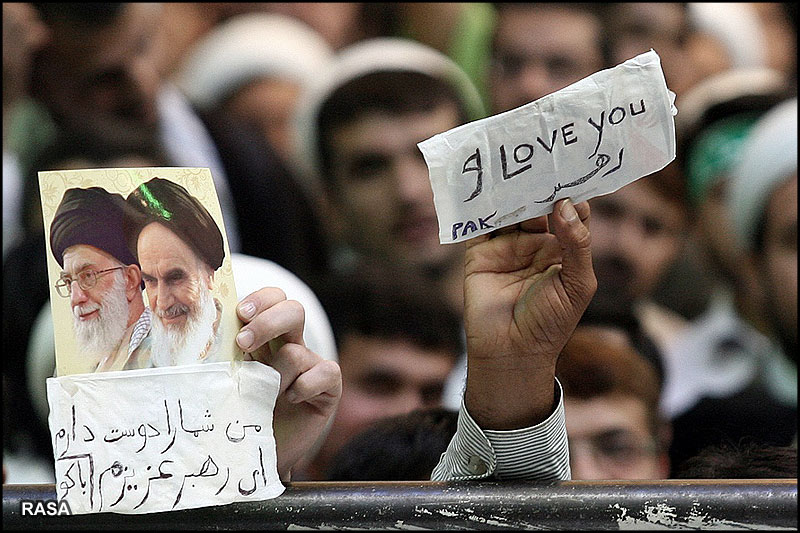 I LOVE YOU
رهبر
PAK
من شما را دوست دارم
ای رهبر عزیزم
باکو
RASA